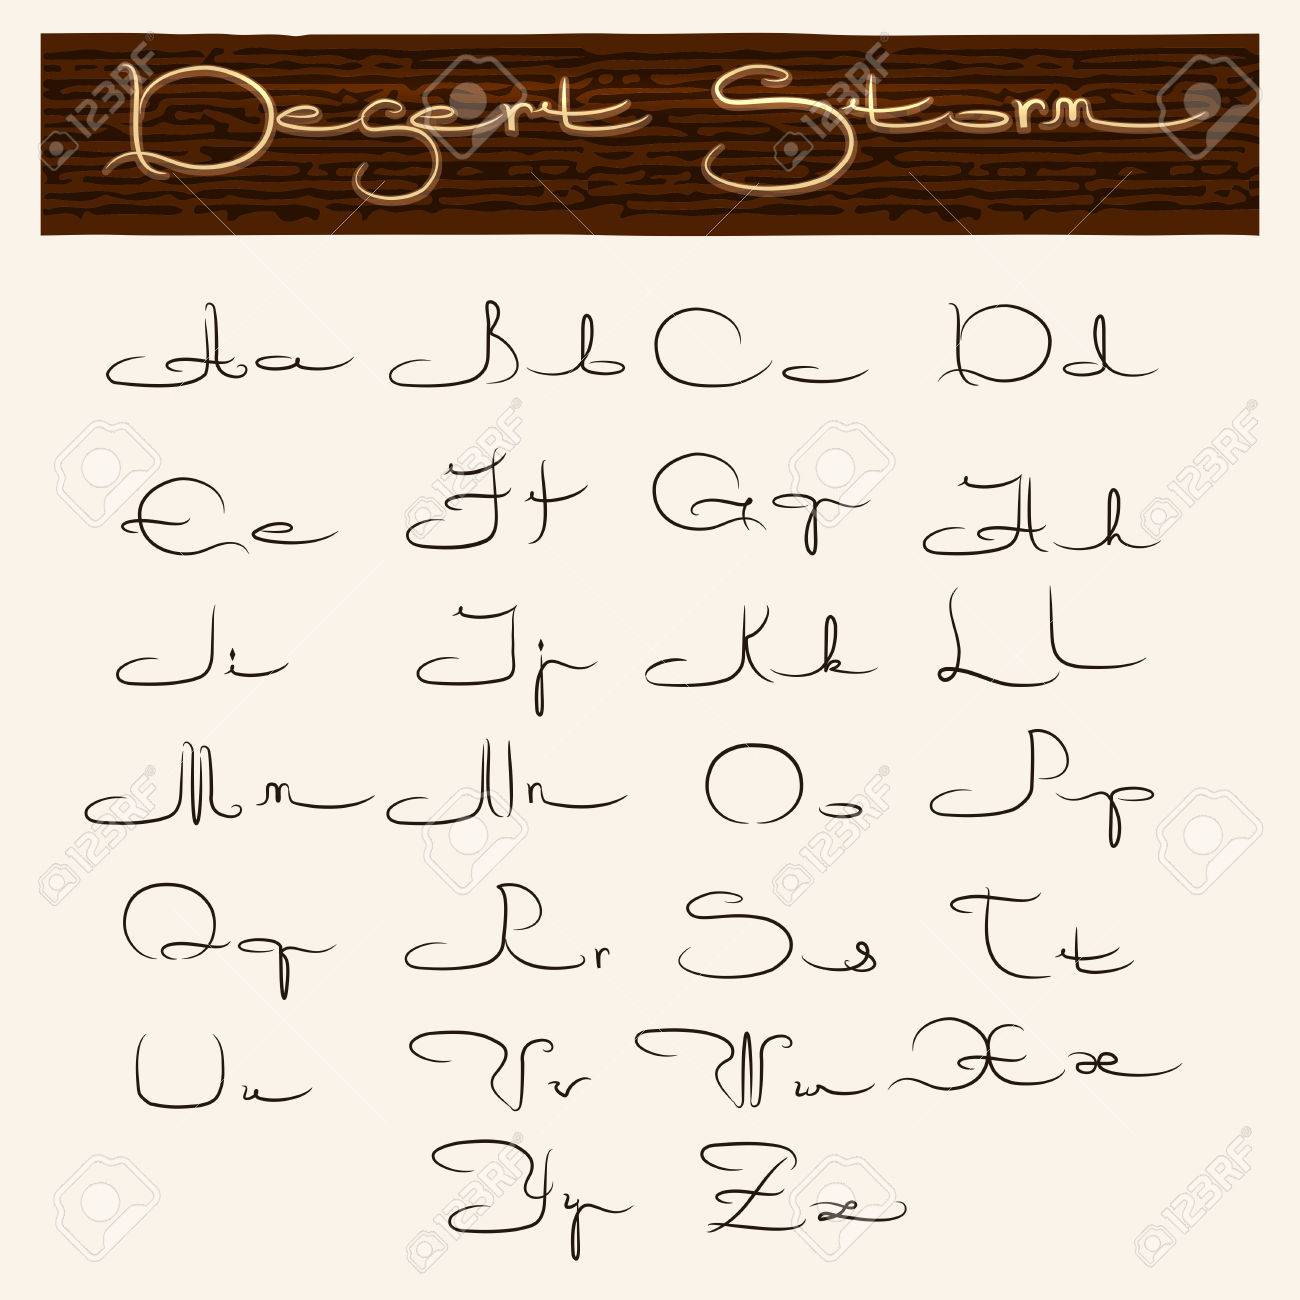 Desert Storm
Aa Bb Cc Dd
Ee Ff Gg Hh
Ii Jj Kk Ll
Mm Nn Oo Pp
Qq Rr Ss Tt
Uu Vv Ww Xx
Yy Zz
123RF